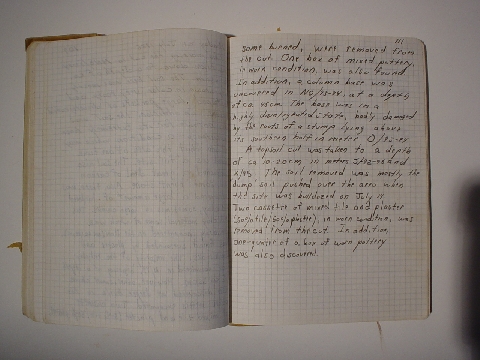 111
some burned, were removed from
the cut. One box of mixed pottery,
in worn condition, was also found.
In addition, a column base was
uncovered in N6/93-94, at a depth
of ca. 45cm. The base was in a
highly disintegrated state, badly damaged
by the roots of a stump lying above
its southern half in meter
A topsoil cut was taken to a depth
of ca 10-20cm in meters and
The soil removed was mostly the
dump soil pushed over the area when
the site was bulldozed on July 11.
Two cassettes of mixed tile and plaster
(50% tile/50% plaster), in worn condition, was
removed from the cut. In addition,
one-quarter of a box of worn pottery
was also discovered.